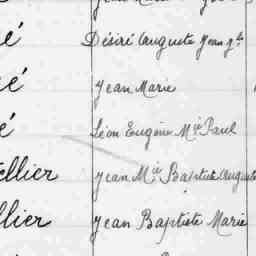 é Désiré Auguste Jean
é Jean Marie
é Léon Eugène Mie Paul
ellier Jean Mie Baptiste Auguste
llier Jean Baptiste Marie